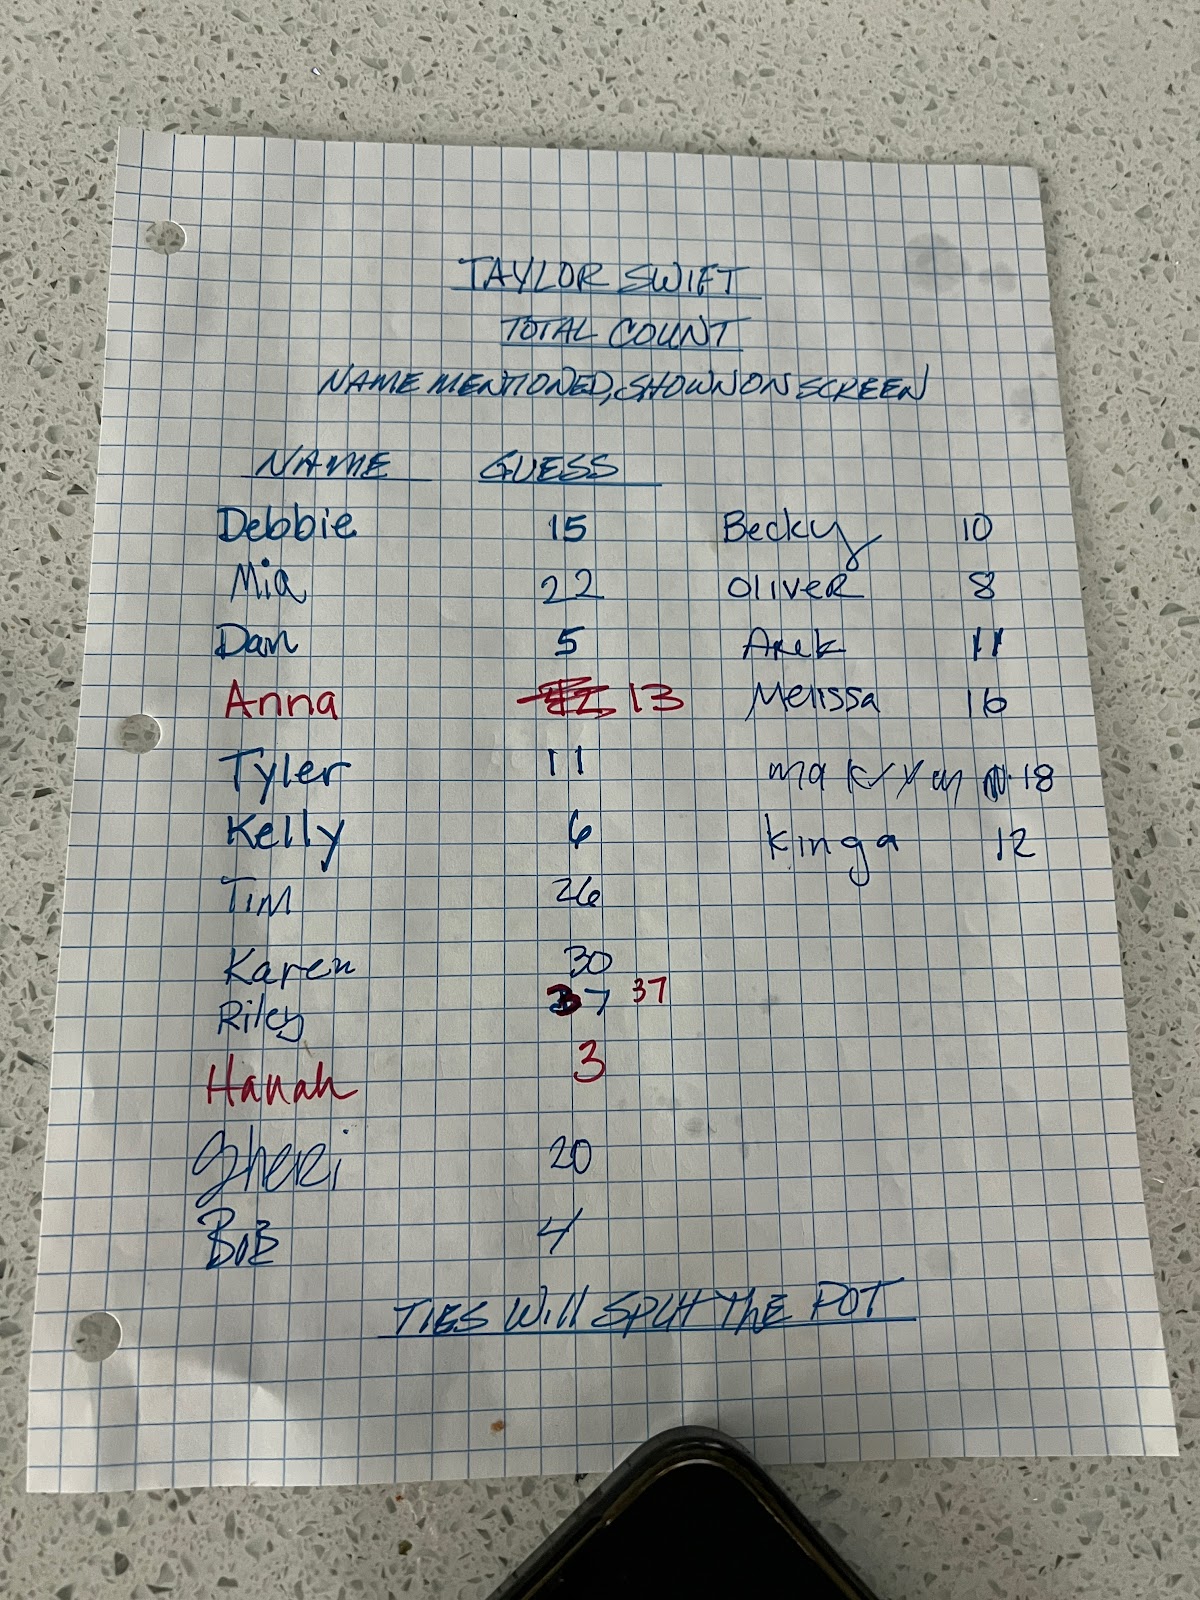 TAYLOR SWIFT
TOTAL COUNT
NAME MENTIONED, SHOWN ON SCREEN
NAME GUESS
Debbie 15 Becky 10
Mia 22 OLIVER 8
Dan 5 Arek 11
Anna 13 Melissa 16
Tyler 11 18
Kelly 6 Kinga 12
TIM 26
Karen 30
Riley 37 37
Hanah 3
SheRi 20
BoB 4
TIES Will SPLIT THE POT